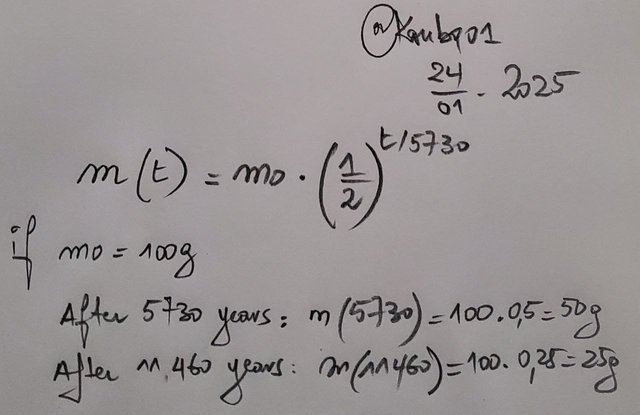 @Kauba01
24/01. 2025
m(t) = m0 · (1/2)^t/5730
if m0 = 100g
After 5730 years: m(5730) = 100. 0,5 = 50g
After 11.460 years: m(11460) = 100. 0,25 = 25g